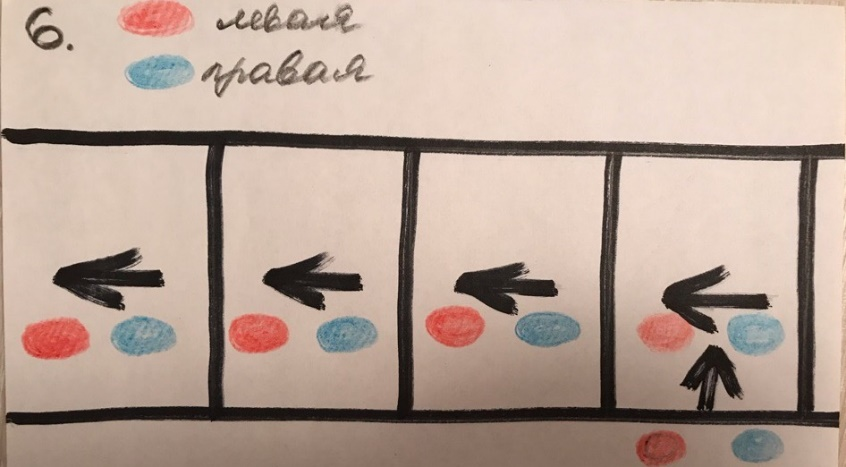 6.
левая
правая